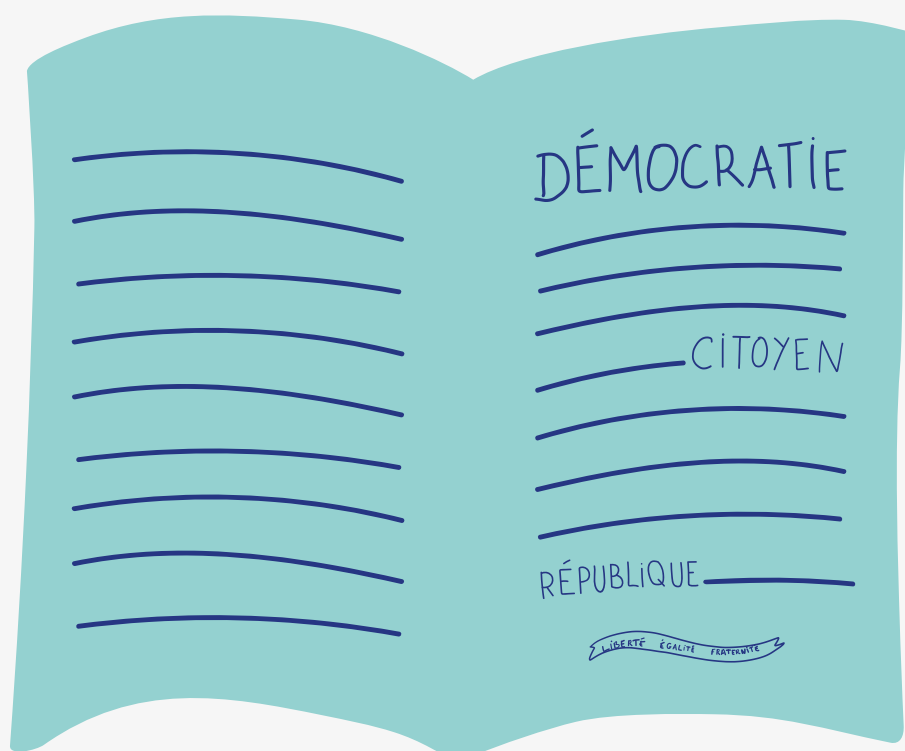 DÉMOCRATIE
CITOYEN
RÉPUBLIQUE
LIBERTÉ ÉGALITÉ FRATERNITÉ